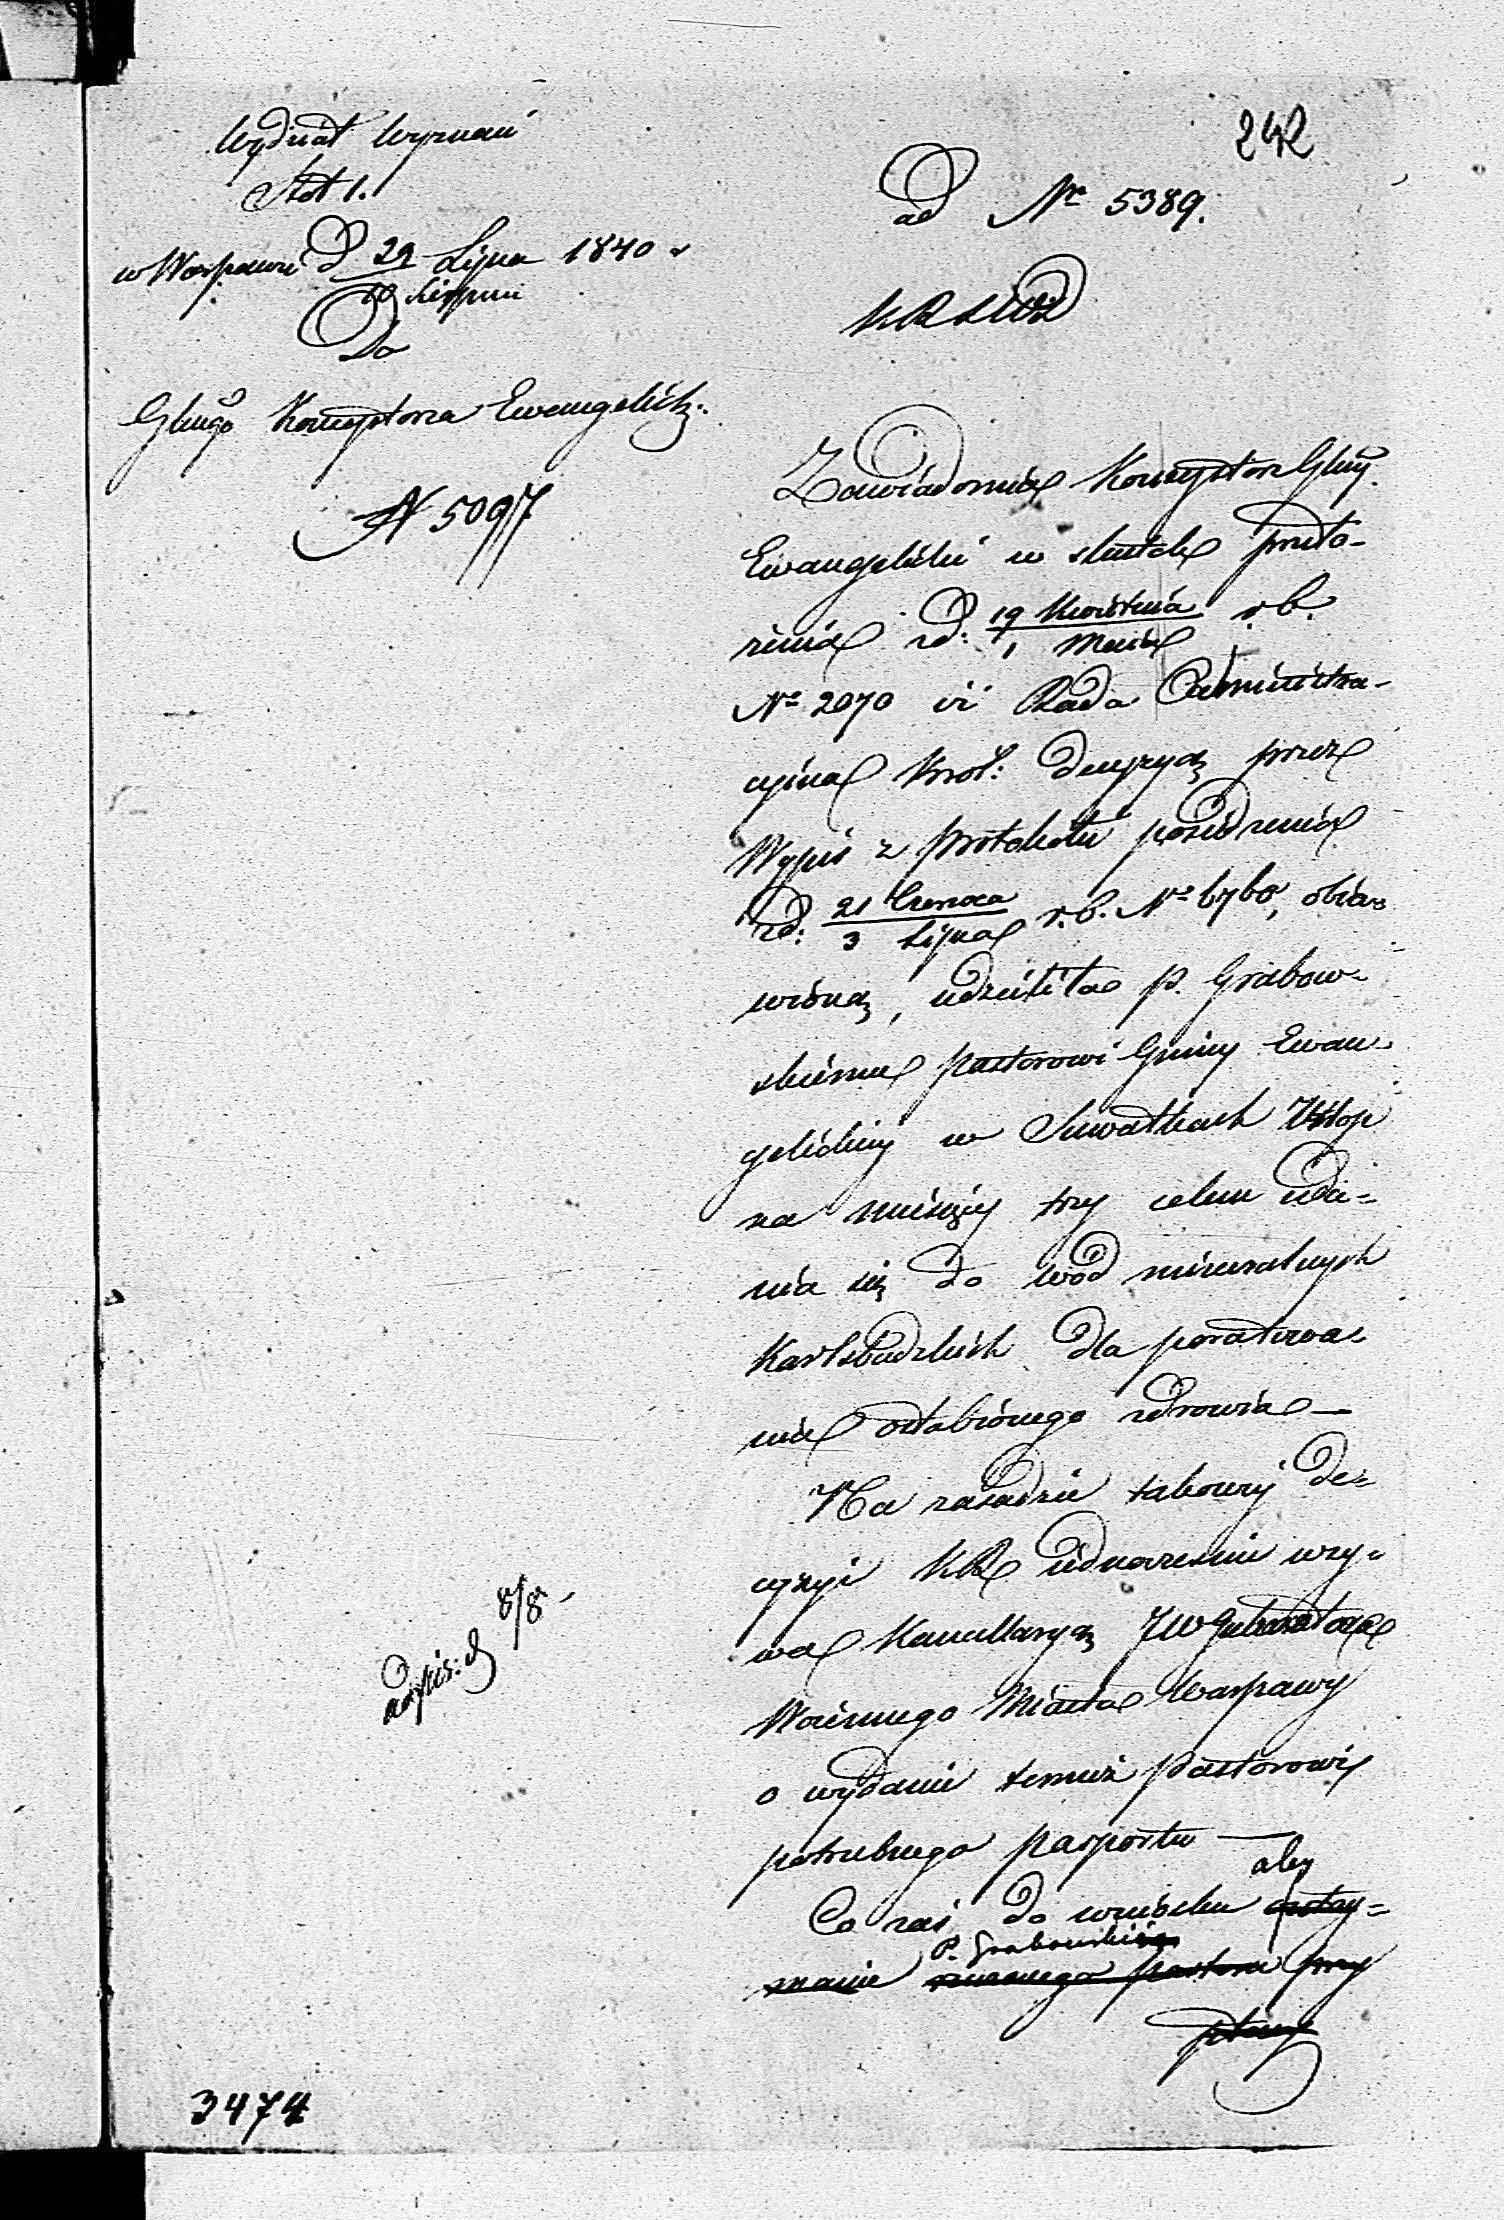 Wydział Wyznań
Stół 1.
w Warszawie d 29 Lipca 1840 r
10 Sierpnia
Do
Głnego Konsystorza Ewangelick:
N 5097
242
ad Nr 5389.
KRSWD
Zawiadomia Konsystorz Głny
Ewangelicki w skutek przeło-
żenia z d: 19 Kwietnia r. b.
1 Maia
No 2070 iż Rada Administra-
cyina Król: decyzyą przez
Wypis z Protokołu posiedzenia
z d: 21 Czerwca r. b. No 6760, obia-
3 Lipca
wioną, udzieliła P. Grabow-
skiemu Pastorowi Gminy Ewan
gelickiey w Suwałkach Urlop
na miesięcy trzy celem uda-
nia się do wód mineralnych
Karlsbadzkich dla poratowa-
nia osłabionego zdrowia —
Na zasadzie takowey de-
cyzyi KR iednocześnie wzy-
wa Kancellaryą JW Gubernatora
Woiennego Miasta Warszawy
o wydanie temuż Pastorowi
potrzebnego paszportu —
aby
Co zaś do wniosku otrzy-
P. Grabowski
manie rzeczonego Pastora przy
3474